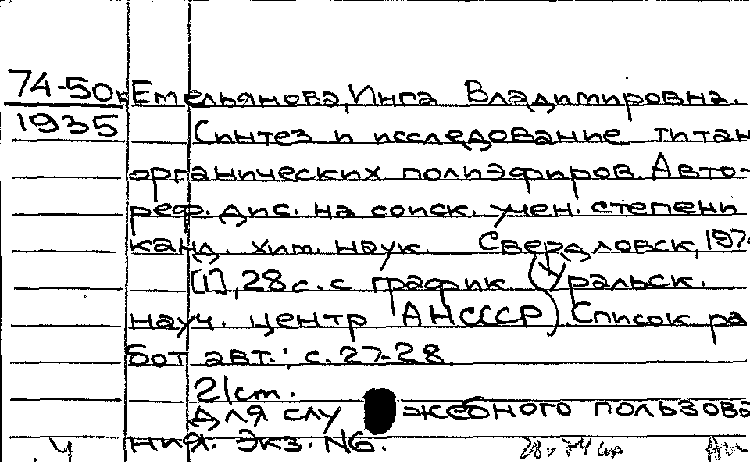 74-50к Емельянова, Инга Владимировна.
1935 Синтез и исследование титан
органических полиэфиров. Авто-
реф. дис. на соиск. учен. степени
канд. хим. наук. Свердловск, 197
[1], 28 с. с график. (Уральск.
науч. центр АН СССР). Список ра
бот авт.: с. 27-28.
21 cm.
Для служебного пользова
ния. Экз. №6.